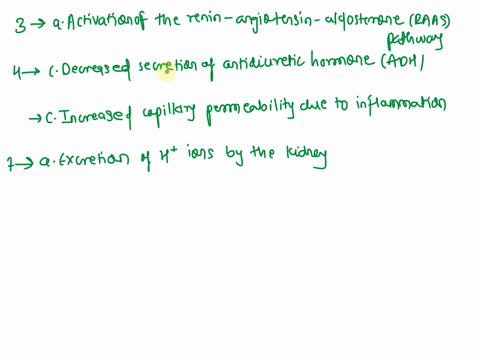 3 → a. Activation of the renin-angiotensin-aldosterone (RAAS)
pathway
4 → c. Decreased secretion of antidiuretic hormone (ADH)
→ c. Increased capillary permeability due to inflammation
7 → a. Excretion of H+ ions by the kidney